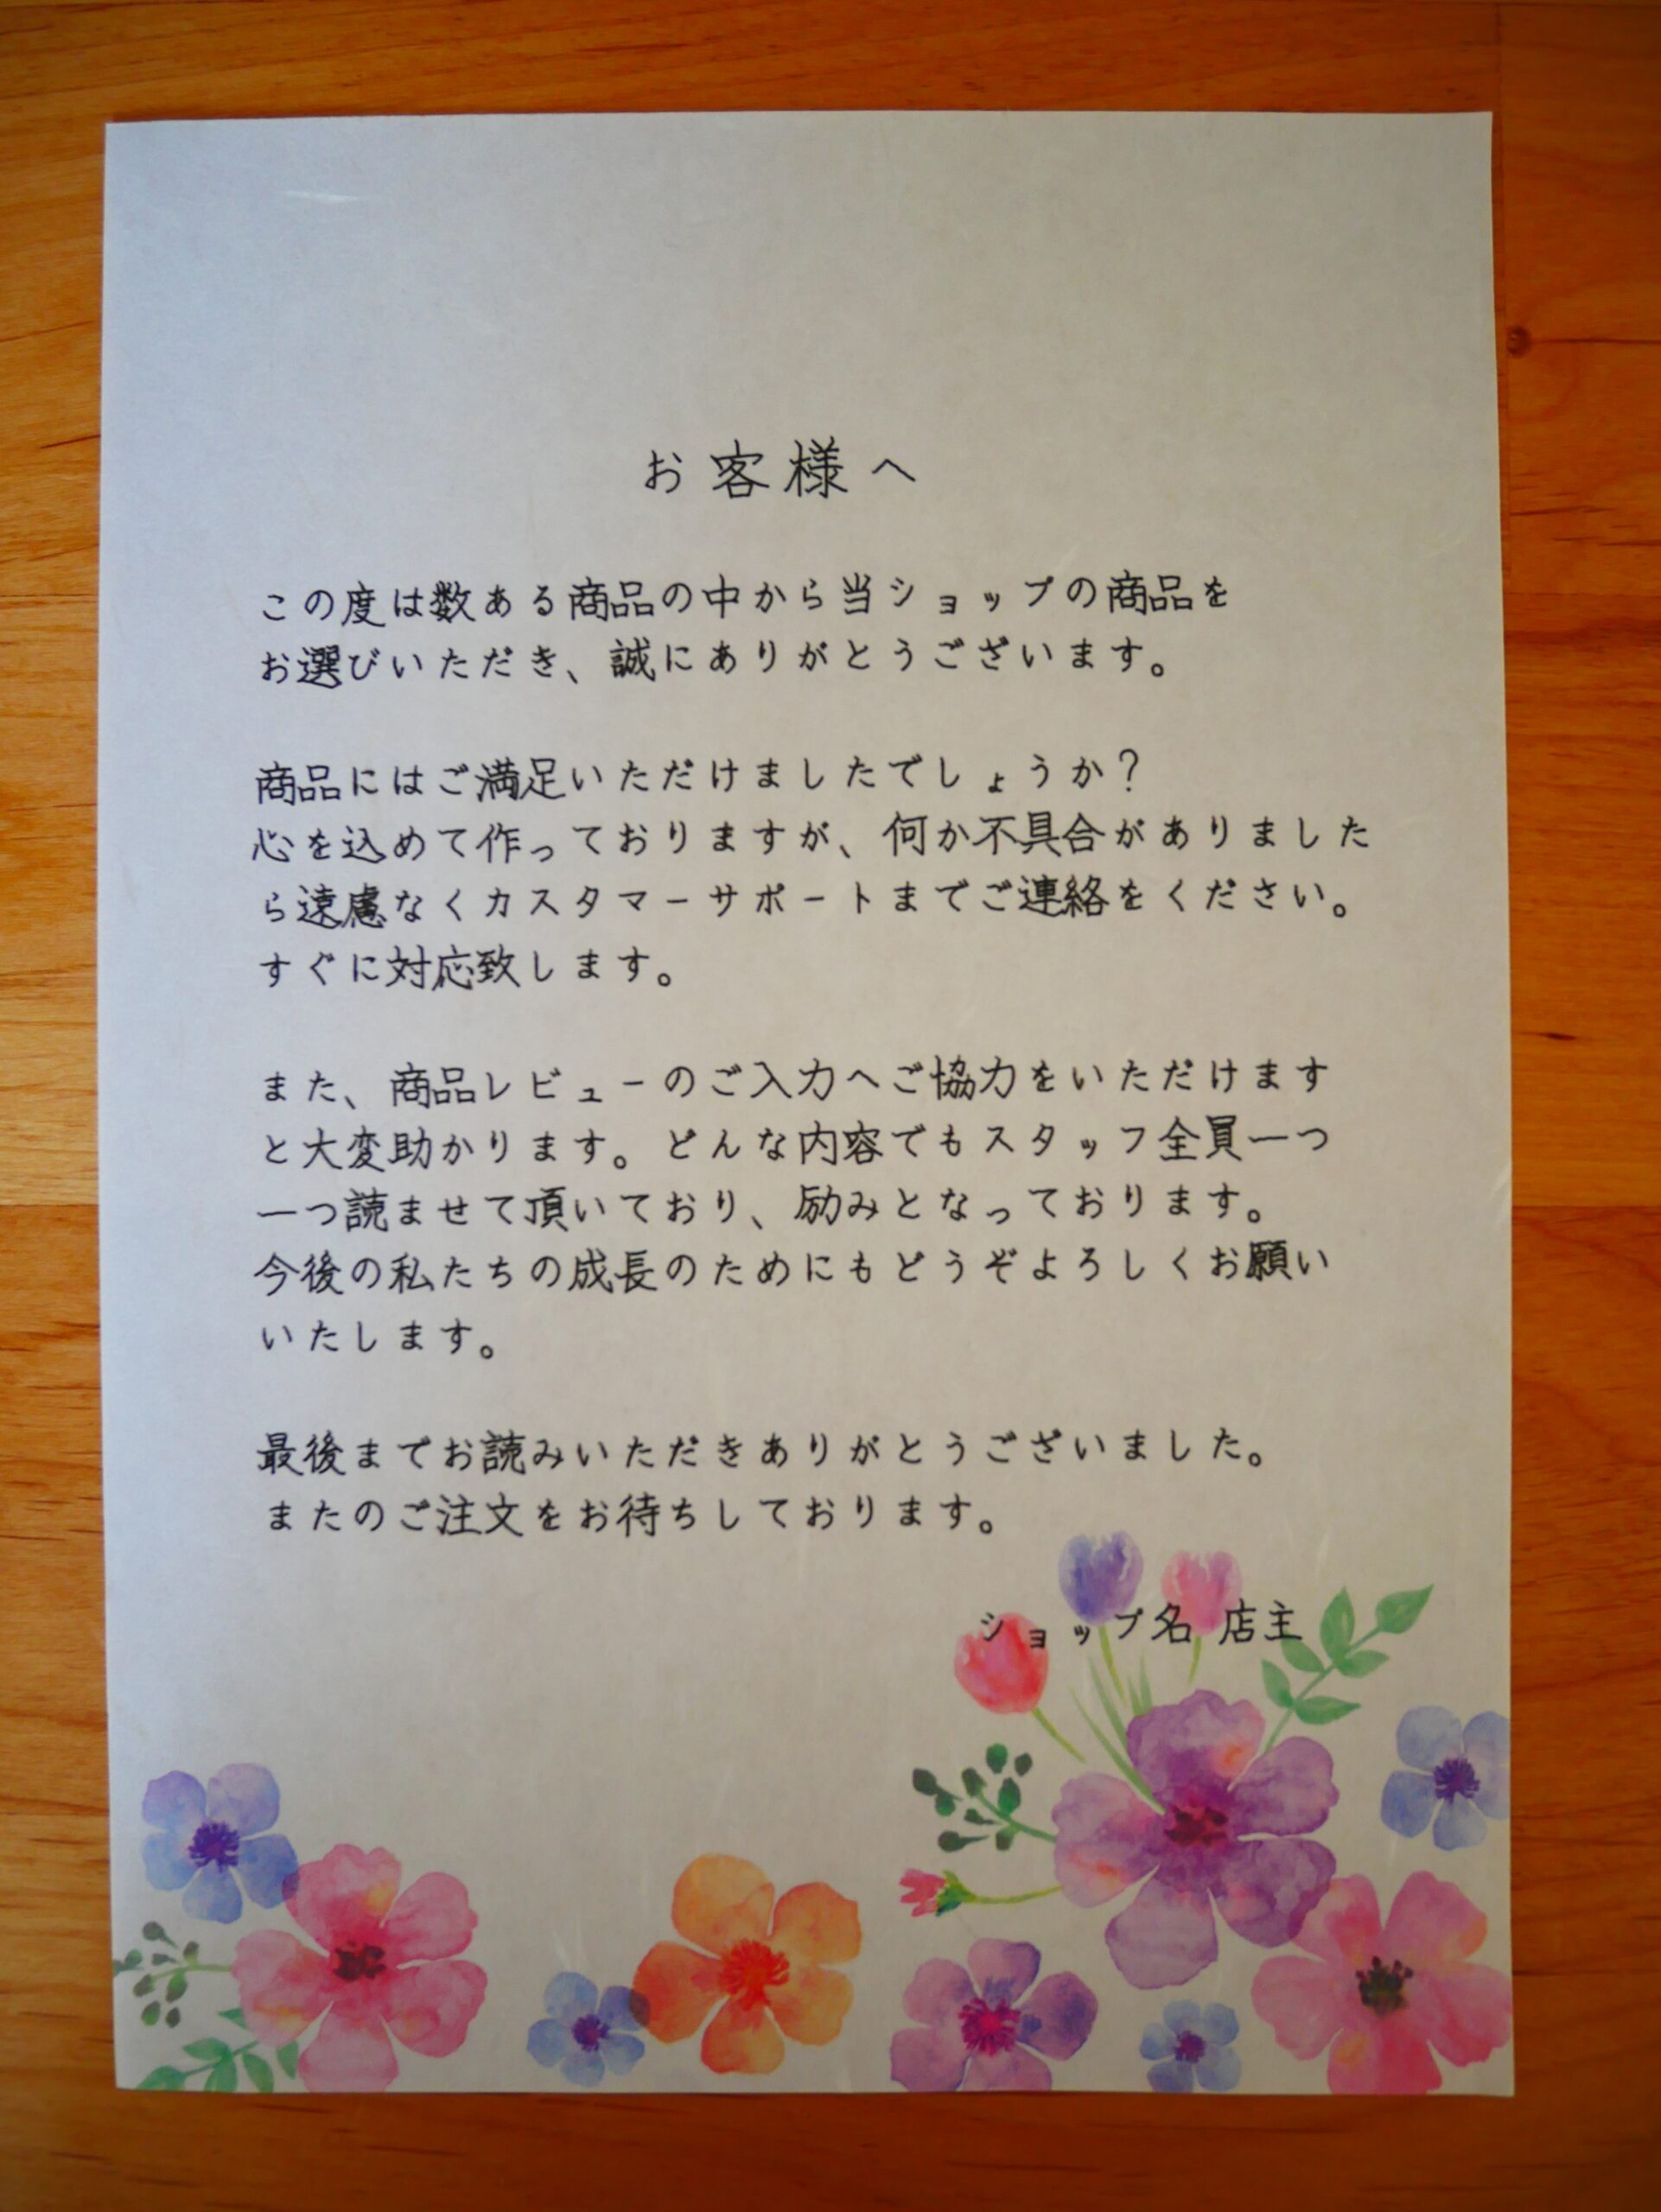 お客様へ
この度は数ある商品の中から当ショップの商品を
お選びいただき、誠にありがとうございます。
商品にはご満足いただけましたでしょうか?
心を込めて作っておりますが、何か不具合がありました
ら遠慮なくカスタマーサポートまでご連絡をください。
すぐに対応致します。
また、商品レビューのご入力へご協力をいただけます
と大変助かります。どんな内容でもスタッフ全員一つ
一つ読ませて頂いており、励みとなっております。
今後の私たちの成長のためにもどうぞよろしくお願い
いたします。
最後までお読みいただきありがとうございました。
またのご注文をお待ちしております。
ショップ名 店主